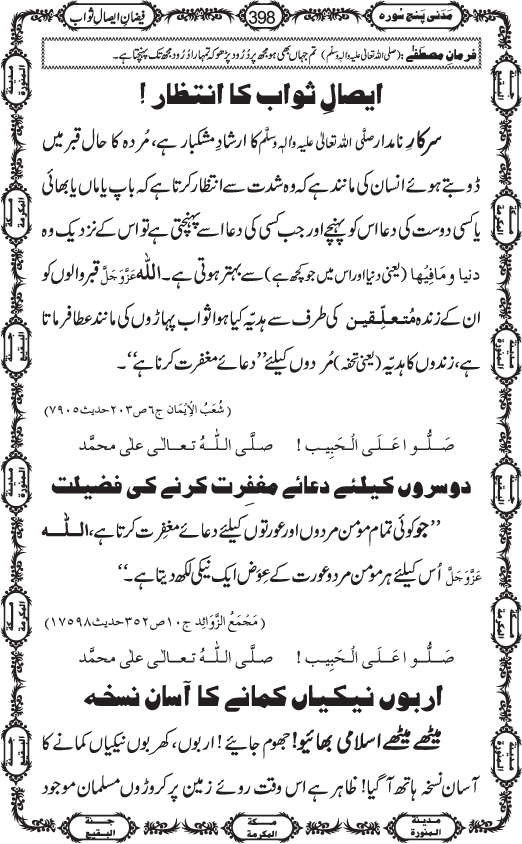 مَدَنی پنج سورہ
398
فیضانِ ایصالِ ثواب
فرمانِ مصطفٰے : (صلی اللہ تعالیٰ علیہ والہٖ وسلّم) تم جہاں بھی ہو مجھ پر دُرُود پڑھو کہ تمہارا دُرُود مجھ تک پہنچتا ہے۔
ایصالِ ثواب کا انتظار !
سرکارِ نامدار صلَّی اللہ تعالیٰ علیہ والہٖ وسلَّم کا ارشادِ مشکبار ہے، مُردہ کا حال قبر میں
ڈوبتے ہوئے انسان کی مانند ہے کہ وہ شدت سے انتظار کرتا ہے کہ باپ یا ماں یا بھائی
یا کسی دوست کی دعا اس کو پہنچے اور جب کسی کی دعا اسے پہنچتی ہے تو اس کے نزدیک وہ
دنیا و مافِیْھا (یعنی دنیا اور اس میں جو کچھ ہے) سے بہتر ہوتی ہے۔ اللہ عَزَّوَجَلَّ قبر والوں کو
ان کے زندہ مُتعلِّقین کی طرف سے ہدیّہ کیا ہوا ثواب پہاڑوں کی مانند عطا فرماتا
ہے، زندوں کا ہدیّہ (یعنی تحفہ) مُردوں کیلئے ’’دعائے مغفرت کرنا ہے‘‘۔
(شُعَبُ الْاِیْمَان ج۶ ص۲۰۳ حدیث ۷۹۰۵)
صَلُّوا عَلَی الْحَبِیب ! صلَّی اللّٰہُ تعالٰی علٰی محمَّد
دوسروں کیلئے دعائے مغفِرت کرنے کی فضیلت
’’جو کوئی تمام مومن مردوں اور عورتوں کیلئے دعائے مغفِرت کرتا ہے، اللّٰہ
عَزَّوَجَلَّ اُس کیلئے ہر مومن مرد و عورت کے عِوَض ایک نیکی لکھ دیتا ہے۔‘‘
(مَجْمَعُ الزَّوَائِد ج۱۰ ص۳۵۲ حدیث ۱۷۵۹۸)
صَلُّوا عَلَی الْحَبِیب ! صلَّی اللّٰہُ تعالٰی علٰی محمَّد
اربوں نیکیاں کمانے کا آسان نسخہ
میٹھے میٹھے اسلامی بھائیو! جھوم جائیے! اربوں، کھربوں نیکیاں کمانے کا
آسان نسخہ ہاتھ آ گیا! ظاہر ہے اس وقت روئے زمین پر کروڑوں مسلمان موجود
مدینۃ المنورۃ
مکۃ المکرمۃ
جنۃ البقیع